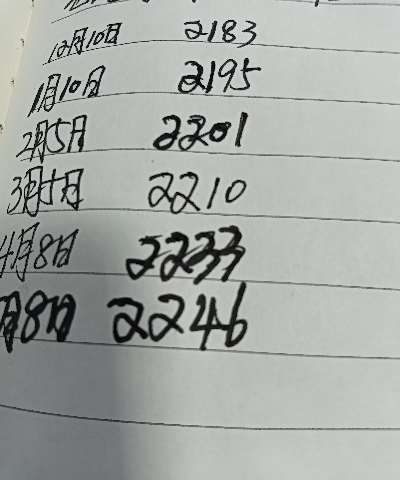 12月10日 2183
1月10日 2195
2月5月 2201
3月5月 2210
4月8日 2233
月8日 2246